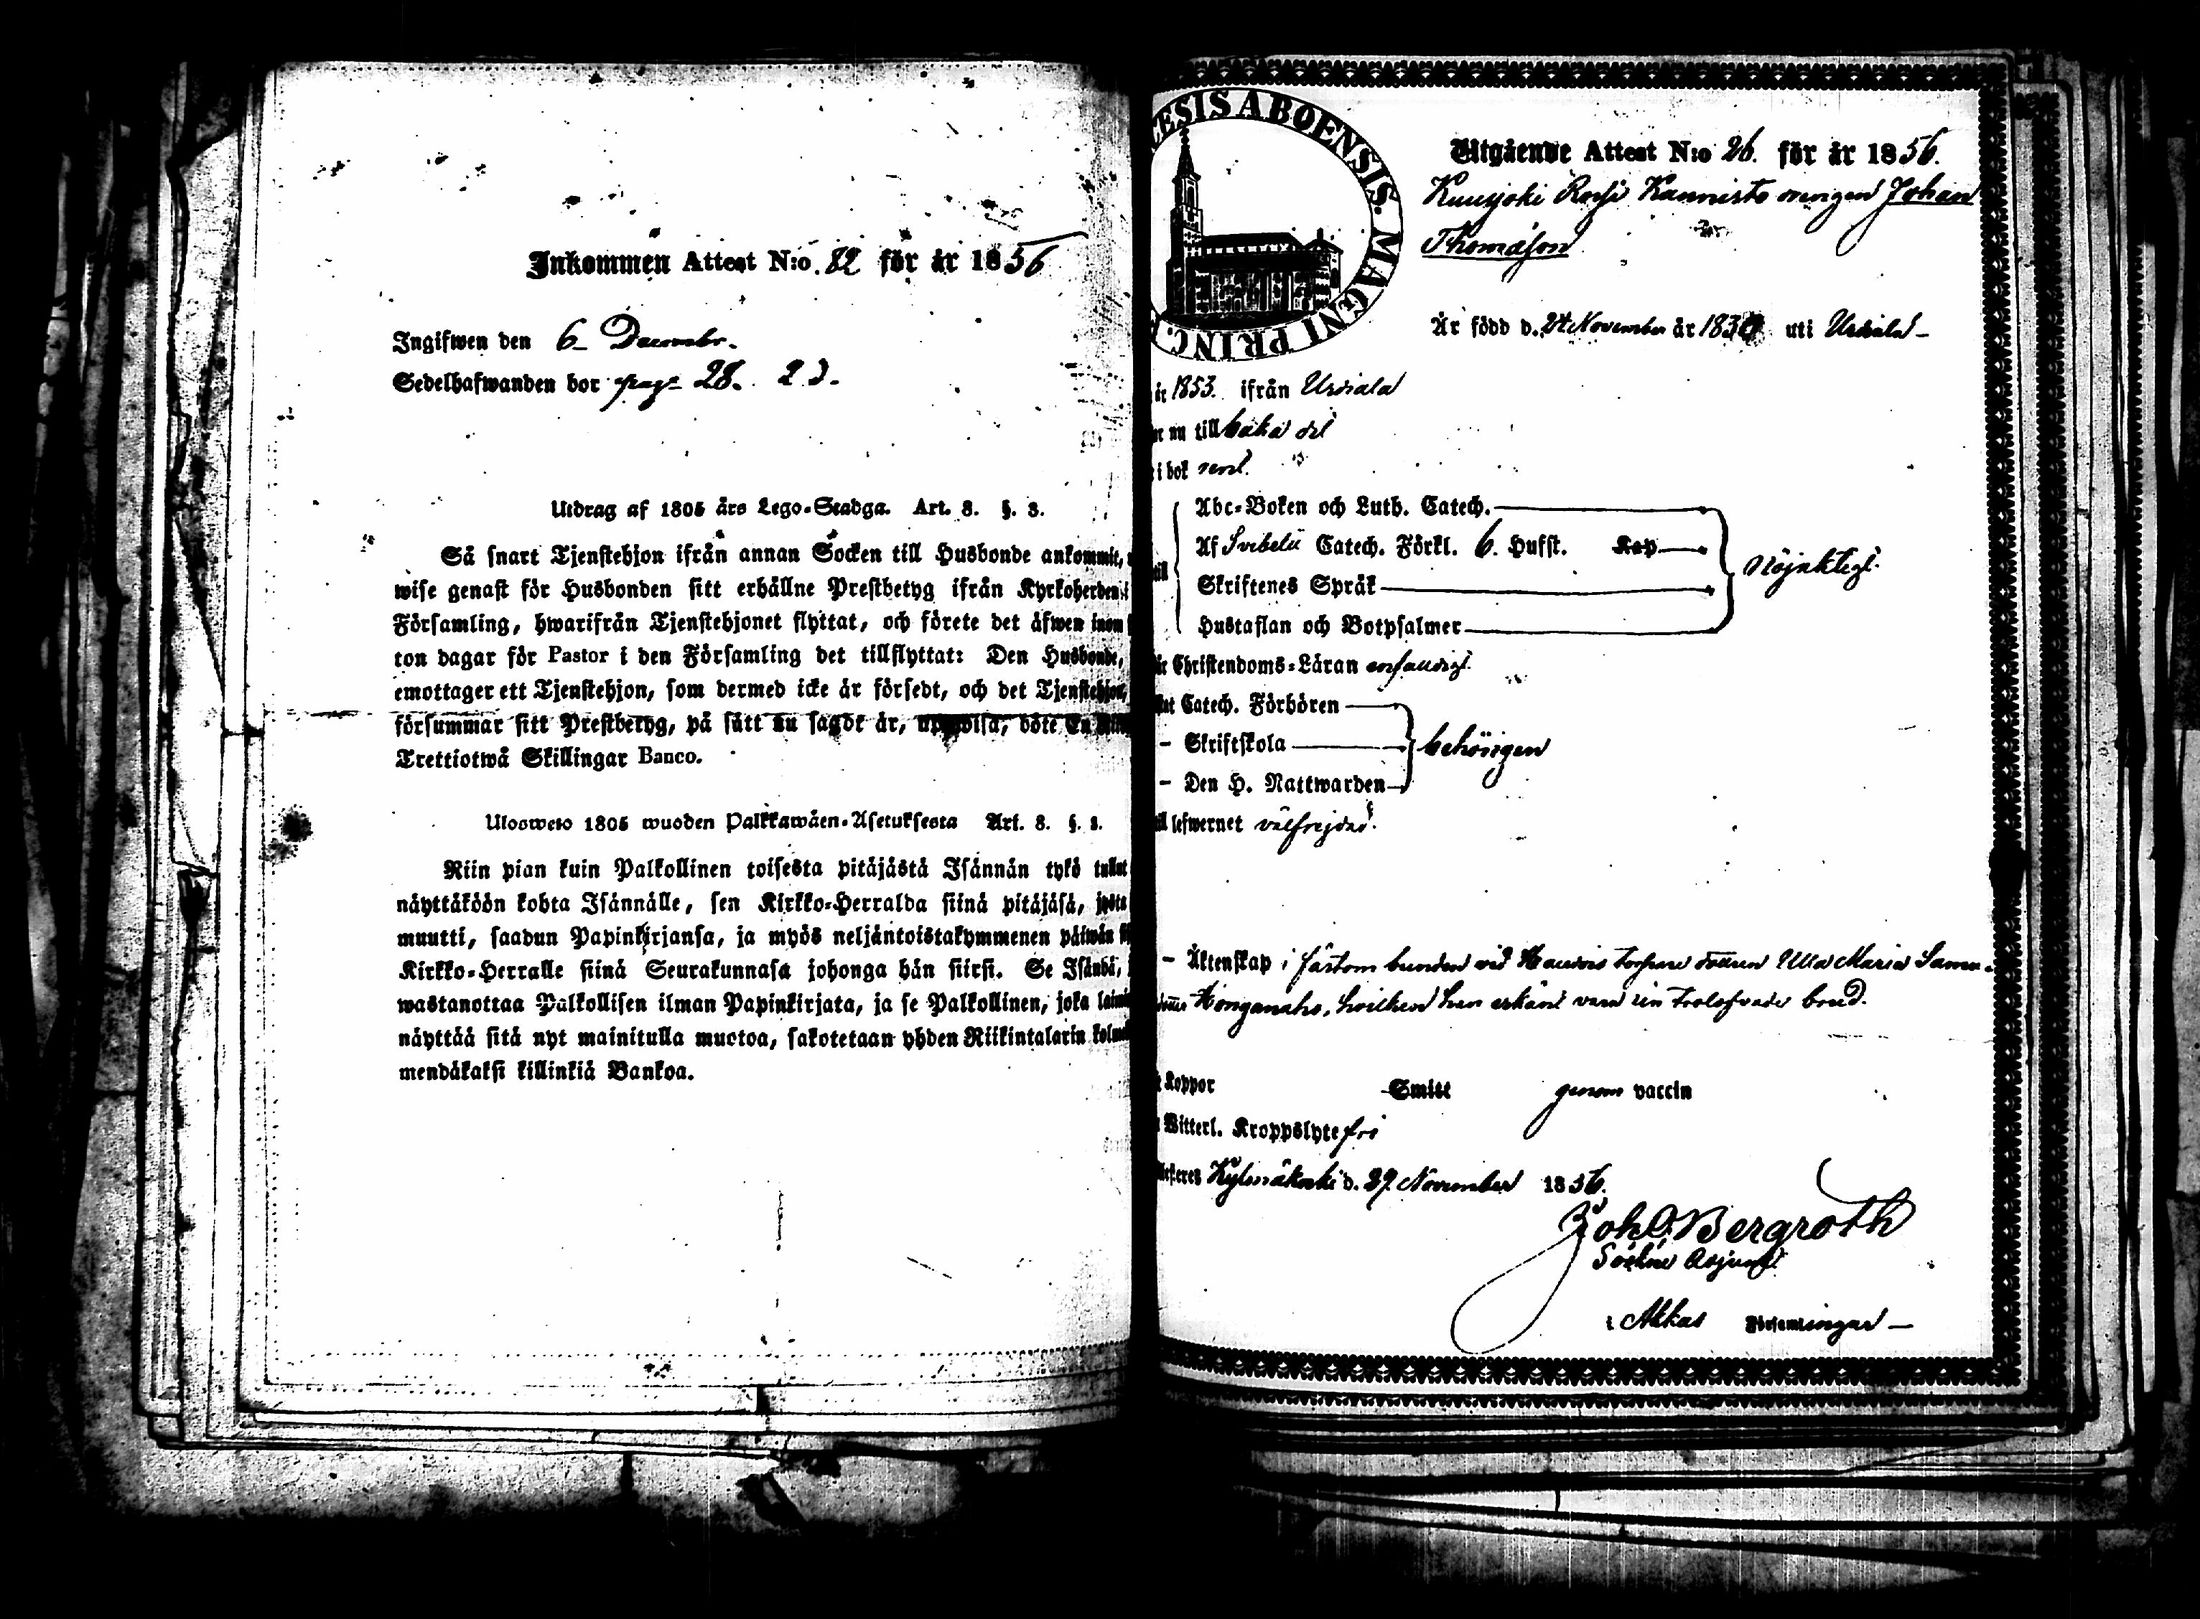 Inkommen Attest N:o 82 för år 1856
Ingifwen den 6 Decembr.
Sedelhafwanden bor pag. 28.
Utdrag af 1805 års Lego-Stadga. Art. 8. §. 3.
Så snart Tjenstehjon ifrån annan Socken till Husbonde ankommit,
wise genast för Husbonden sitt erhållne Prestbetyg ifrån Kyrkoherden i
Församling, hwarifrån Tjenstehjonet flyttat, och förete det äfwen inom
ton dagar för Pastor i den Församling det tillflyttat: Den Husbonde,
emottager ett Tjenstehjon, som dermed icke är försedt, och det Tjenstehjon,
försummar sitt Prestbetyg, på sätt nu sagdt är, uppwisa, böte En
Trettiotwå Skillingar Banco.
Ulosweto 1805 wuoden Palkkawäen-Asetuksesta Art. 8. §. 3.
Niin pian kuin Palkollinen toisesta pitäjästä Isännän tykö tullut
näyttäköön kohta Isännälle, sen Kirkko-Herralda siinä pitäjäsä, josta
muutti, saadun Papinkirjansa, ja myös neljäntoistakymmenen päiwän
Kirkko-Herralle siinä Seurakunnasa johonga hän siirsi. Se Isändä,
wastanottaa Palkollisen ilman Papinkirjata, ja se Palkollinen, joka
näyttää sitä nyt mainitulla muotoa, sakotetaan yhden Riikintalarin
mendäkaksi killinkiä Bankoa.
ESIS ABOENSIS. MAGNI PRINC.
Utgående Attest N:o 26. för år 1856.
Kuusjoki Kannisto drengen Johan
Thomasson
Är född d. 24 November år 1830 uti Urdiala
år 1853. ifrån Urdiala
nu tillbaka dit
i bok rent.
Abc-Boken och Luth. Catech.
Af Svebelii Catech. Förkl. 6. Hufst. Kap
Skriftenes Språk
nöjaktigt.
Hustaflan och Botpsalmer
Christendoms-Läran enfaldigt.
Catech. Förhören
- Skriftskola
behörigen
- Den H. Nattwarden
till lefwernet välfrejdad.
- Äktenskap i fästom bunden vid torpare dottren Ulla Maria
Honganaho, hvilken han erkänt vara sin trolofvade brud.
Koppor Smitt genom vaccin
Witterl. Kroppslyte fri
Kylmäkoski d. 27. November 1856.
Joh. O. Bergroth
Sockne Adjunct
i Akkas Församlingar